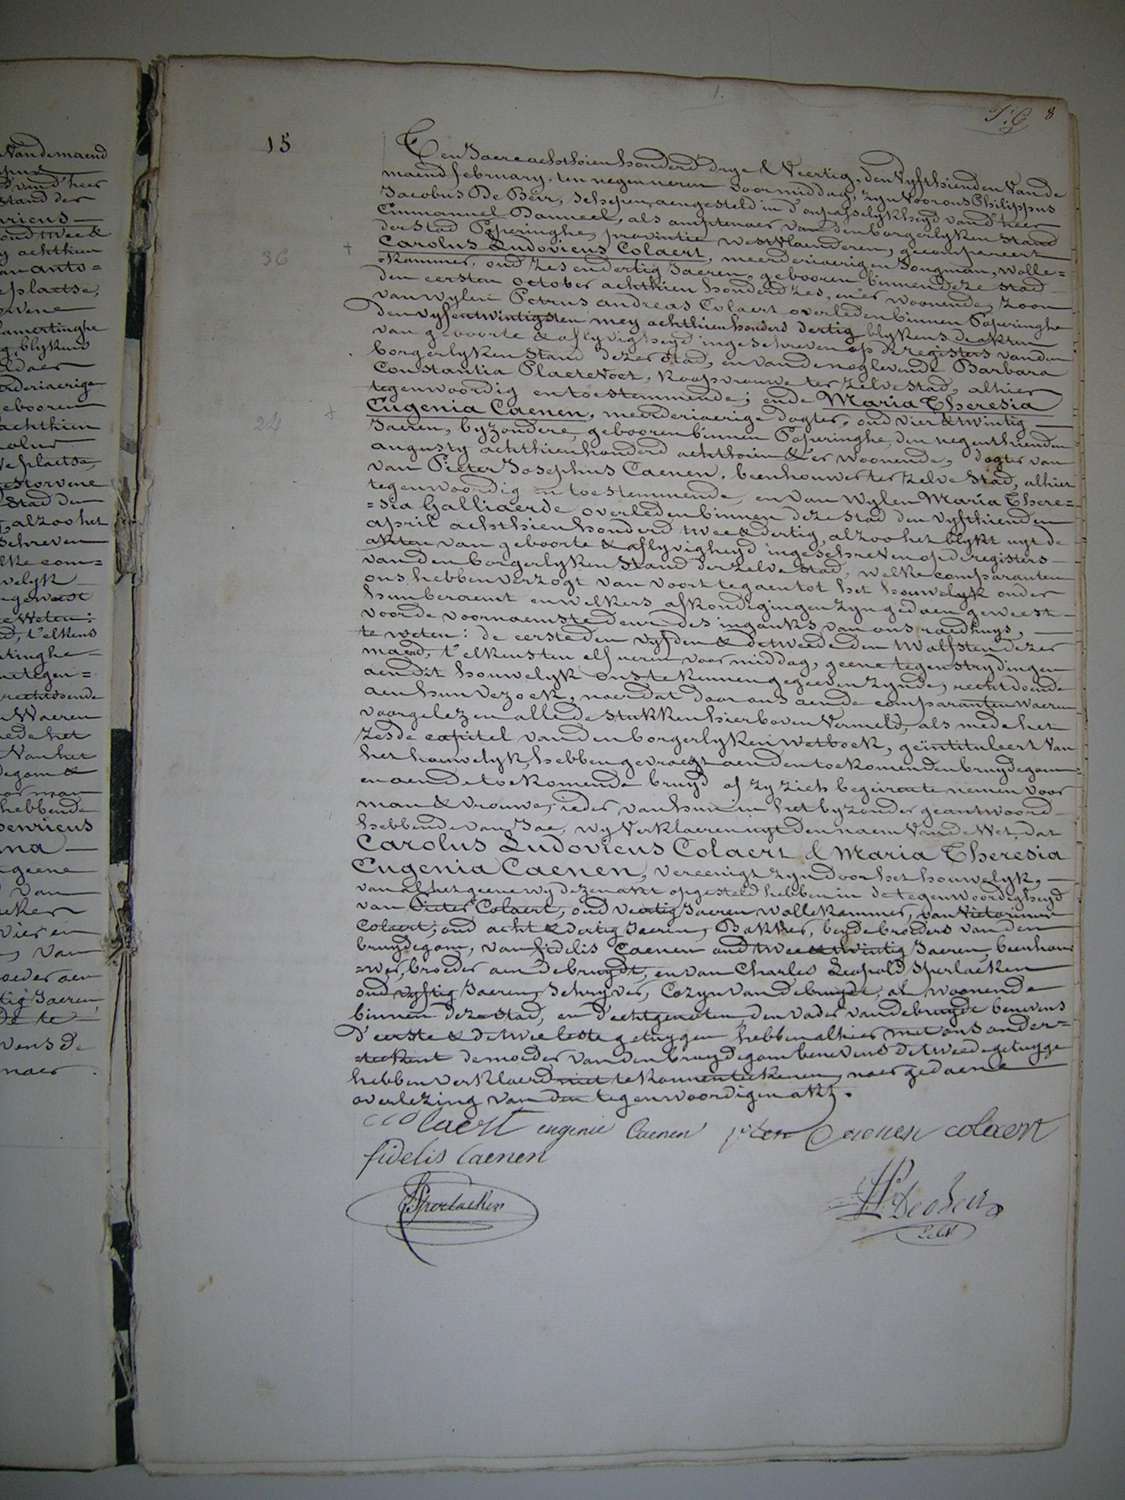 15
8
Den Jaere achthienhonderd drye & Veertig, den Vyfthienden Van de
maend february, ten neg eneren voormiddag, zyn Voor ons Philippus
Jacobus De Beir, schepen, aengesteld in d'afhangelykheyd van d'heer
Emmanuel Banneel, als amptenaer van den borgerlyken stand
der stad Poperinghe, provintie westvlaenderen, gecompareert
Carolus Ludovicus Colaert, meerderjaerigen Jongman, wolle-
36
kammer, oud zes en dertig Jaeren, gebooren binnen deze stad
den eersten october achthien honderd zes, en er woonende, zoon
van wylen Petrus andreas Colaert overleden binnen Poperinghe
den vyfentwintigsten mey achthien honderd dertig blykens de akten
van geboorte & aflyvigheyd ingeschreven op de registers van den
borgerlyken stand dezer stad, en van de nog levende Barbara
Constantia Plaetevoet, koopvrouwe ter zelve stad, alhier
tegenwoordig en toestemmende; ende Maria Theresia
24
Eugenia Caenen, meerderjaerige dogter, oud vier & twintig
Jaeren, byzondere, gebooren binnen Poperinghe, den negenthienden
augusty achthienhonderd achthien & er woonende, dogter van
van Pieter Josephus Caenen, beenhouwer ter zelve stad, alhier
tegenwoordig en toestemmende, en van wylen Maria There=
=sia Galliaerde overleden binnen deze stad den vyfthienden
april achthien honderd twee & dertig, alzoo het blykt uyt de
akten van geboorte & aflyvigheyd ingeschreven op de registers
van den borgerlyken stand der zelve stad, welke comparanten
ons hebben verzogt van voort te gaen tot het houwelyk onder
hun beraemt en welkers afkondigingen zyn gedaen geweest
voor de voornaemste deur des ingangs van ons raedhuys,
te weten: de eerste den vyfden & de tweede den twalfsten dezer
maend, t'elkens ten elf ueren voor middag, geene tegenstrydingen
aen dit houwelyk ons te kennen gegeeven zynde, recht doende
aen hun verzoek, naer dat door ons aen de comparanten waeren
voorgelezen alle de stukken hierboven vermeld, als mede het
zesde capitel van den borgerlyken wetboek, geintituleert van
het houwelyk, hebben gevraegt aen den toekomenden bruydegom
en aen de toekomende bruyd of zy zich begeirate nemen voor
man & vrouwe, ieder van hun in het byzonder geantwoord
hebbende van Jae, wy verklaeren uyt den naem van de Wet, dat
Carolus Ludovicus Colaert & Maria Theresia
Eugenia Caenen, vereenigt zyn door het houwelyk,
van al het geene wy dezen akt opgesteld hebben in de tegenwoordigheyd
van Pieter Colaert, oud veertig Jaeren wollekammer, van Victorinus
Colaert, oud acht & dertig Jaeren, Bakker, beyde broeders van den
bruydegom, van fidelis Caenen oud twee & twintig Jaeren, beenhou=
=wer, broeder aen de bruydt, en van Charles Leopold Sperlaeken
oud vyftig Jaeren, schryver, Cozyn van de bruyde, al woonende
binnen deze stad, en d'echtgenoten den vader van de bruyde benevens
d'eerste & de twee leste getuygen hebben alhier met ons onder=
=teekent de moeder van den bruydegom benevens de tweede getuyge
hebben verklaerd niet te konnen teekenen, naer gedaene
overlezing van den tegenwoordigen akt.
Colaert eugenie Caenen Pieter Caenen colaert
fidelis Caenen
Sperlaeken
PJ DeBeir